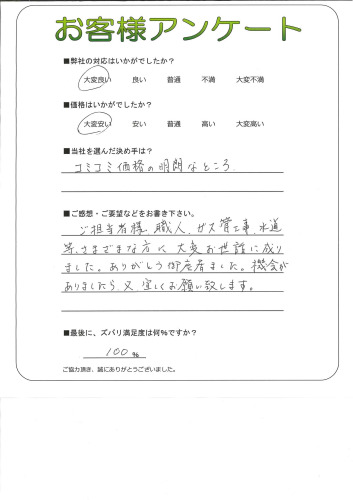 お客様アンケート
■弊社の対応はいかがでしたか?
大変良い 良い 普通 不満 大変不満
■価格はいかがでしたか?
大変安い 安い 普通 高い 大変高い
■当社を選んだ決め手は?
コミコミ価格の明朗なところ
■ご感想・ご要望などをお書き下さい。
ご担当者様、職人、ガス管工事、水道
等、さまざまな方々 大変お世話に成り
ました。ありがとう御座居ました。機会が
ありましたら、又、宜しくお願い致します。
■最後に、ズバリ満足度は何%ですか?
100%
ご協力頂き、誠にありがとうございました。